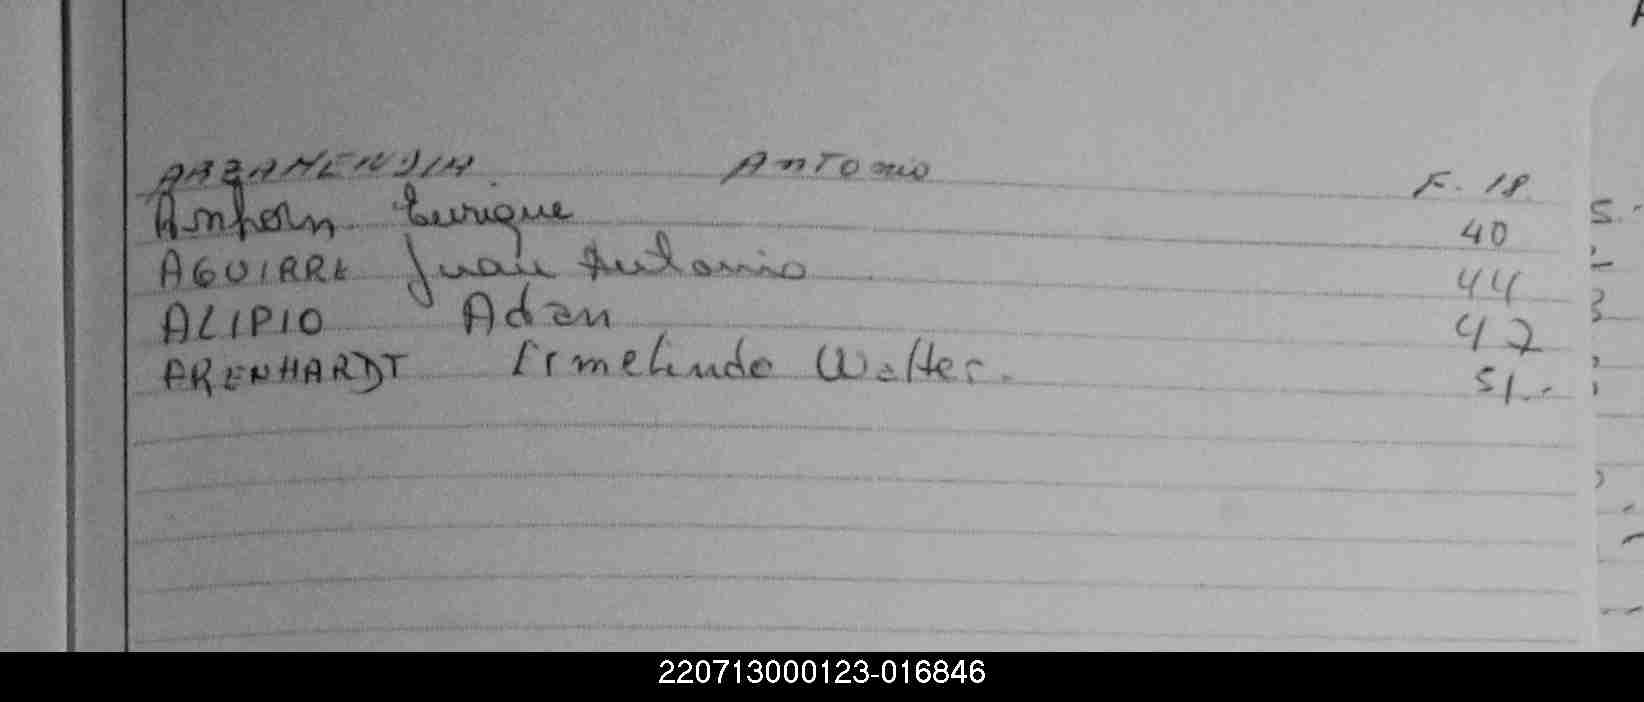 ARZAMENDIA. Antonio F. 18.
Anhorn Enrique 40
AGUIRRE Juan Antonio 44
ALIPIO Adan 47
ARENHARDT Irmelindo Walter. 51.-
220713000123-016846